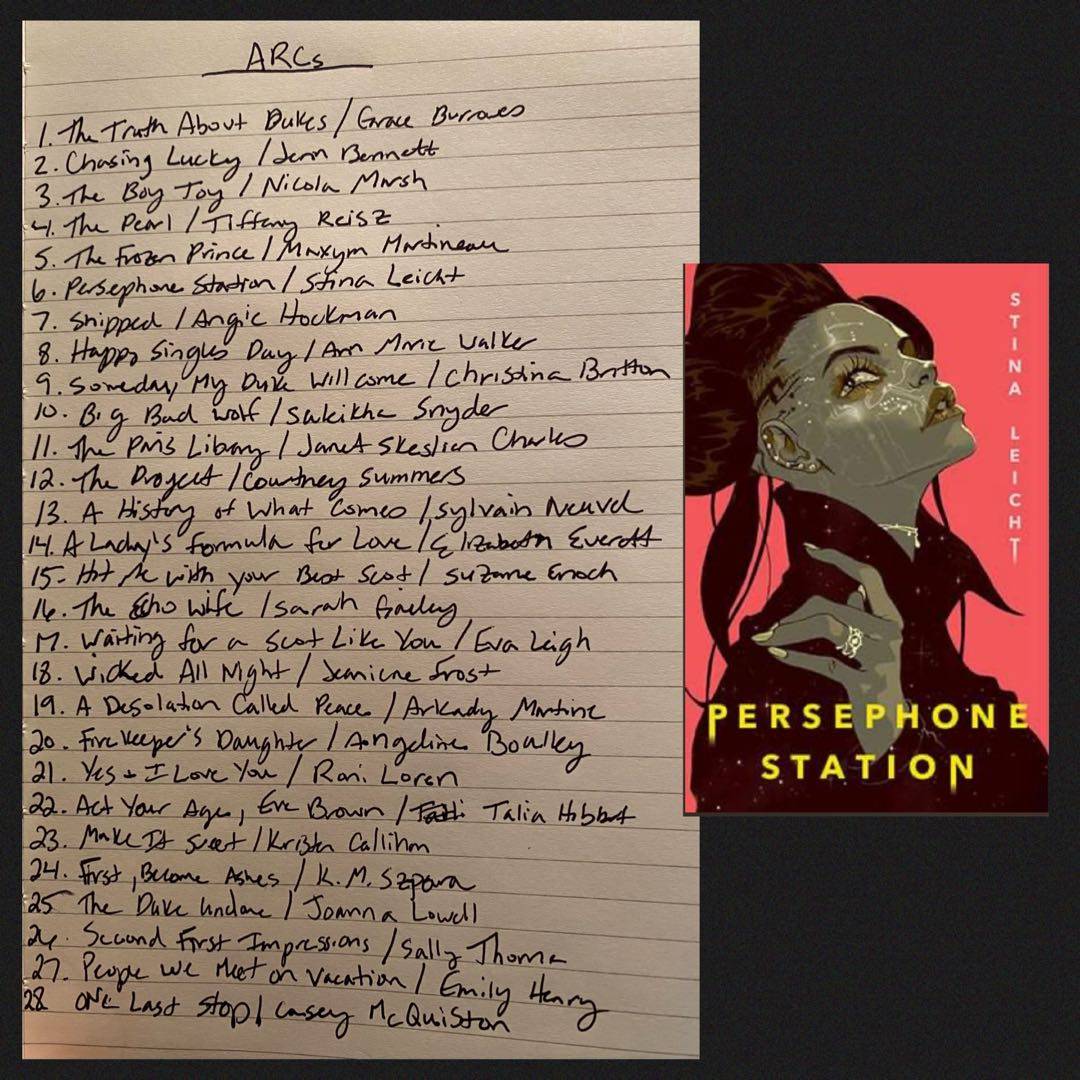 ARCs
1. The Truth About Dukes / Grace Burrowes
2. Chasing Lucky / Jenn Bennett
3. The Boy Toy / Nicola Marsh
4. The Pearl / Tiffany Reisz
5. The Frozen Prince / Maxym Martineau
6. Persephone Station / Stina Leicht
7. Shipped / Angie Hockman
8. Happy Singles Day / Ann Marie Walker
9. Someday, My Duke Will Come / Christina Britton
10. Big Bad Wolf / Suleikha Snyder
11. The Paris Library / Janet Skeslien Charles
12. The Project / Courtney Summers
13. A History of What Comes / Sylvain Neuvel
14. A Lady's Formula for Love / Elizabeth Everett
15. Hit Me with your Best Scot / Suzanne Enoch
16. The Echo Wife / Sarah Gailey
17. Waiting for a Scot Like You / Eva Leigh
18. Wicked All Night / Jeaniene Frost
19. A Desolation Called Peace / Arkady Martine
20. Firekeeper's Daughter / Angeline Boulley
21. Yes + I Love You / Roni Loren
22. Act Your Age, Eve Brown / Talia Hibbert
23. Make It Sweet / Kristen Callihan
24. First, Become Ashes / K.M. Szpara
25 The Duke Undone / Joanna Lowell
26. Second First Impressions / Sally Thorne
27. People We Meet on Vacation / Emily Henry
28 One Last Stop / Casey McQuiston
STINA LEICHT
PERSEPHONE
STATION